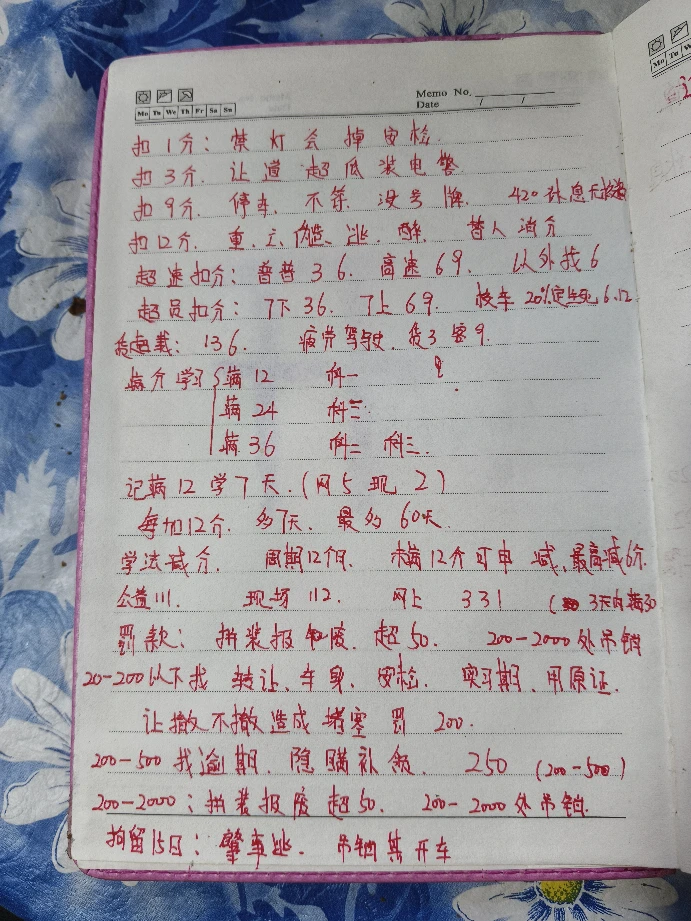 Memo No.
Mo Tu We Th Fr Sa Su
Date / /
扣1分: 禁 灯 会 掉 安 检.
扣3分. 让 道 超 低 装 电 警
扣9分. 停车. 不符 没号 牌. 420 休息无校
扣12分. 重、 逃、醉. 替人 消分
超速扣分: 普普 36. 高速 69. 以外找 6
超员扣分: 7下 36. 7上 69. 校车 20% 6.12
货超载: 136. 疲劳驾驶. 货3 客9.
满分学习 满12 科一
满24 科三
满36 科二 科三.
记满12 学7天. (网5 现 2)
每加12分. 多7天. 最多 60天
学法减分. 周期12个月. 未满12分可申 减, 最高减6分.
公益111. 现场 112. 网上 331 ( 3天内满30
罚款: 拼装报废. 超50. 200-2000处吊销
20-200以下找 转让、车身、安检. 实习期、用原证.
让撤不撤造成 堵塞 罚 200.
200-500 找逾期. 隐瞒补领. 250 (200-500)
200-2000: 拼装报废 超50. 200-2000处吊销.
拘留15日: 肇事逃. 吊销其开车